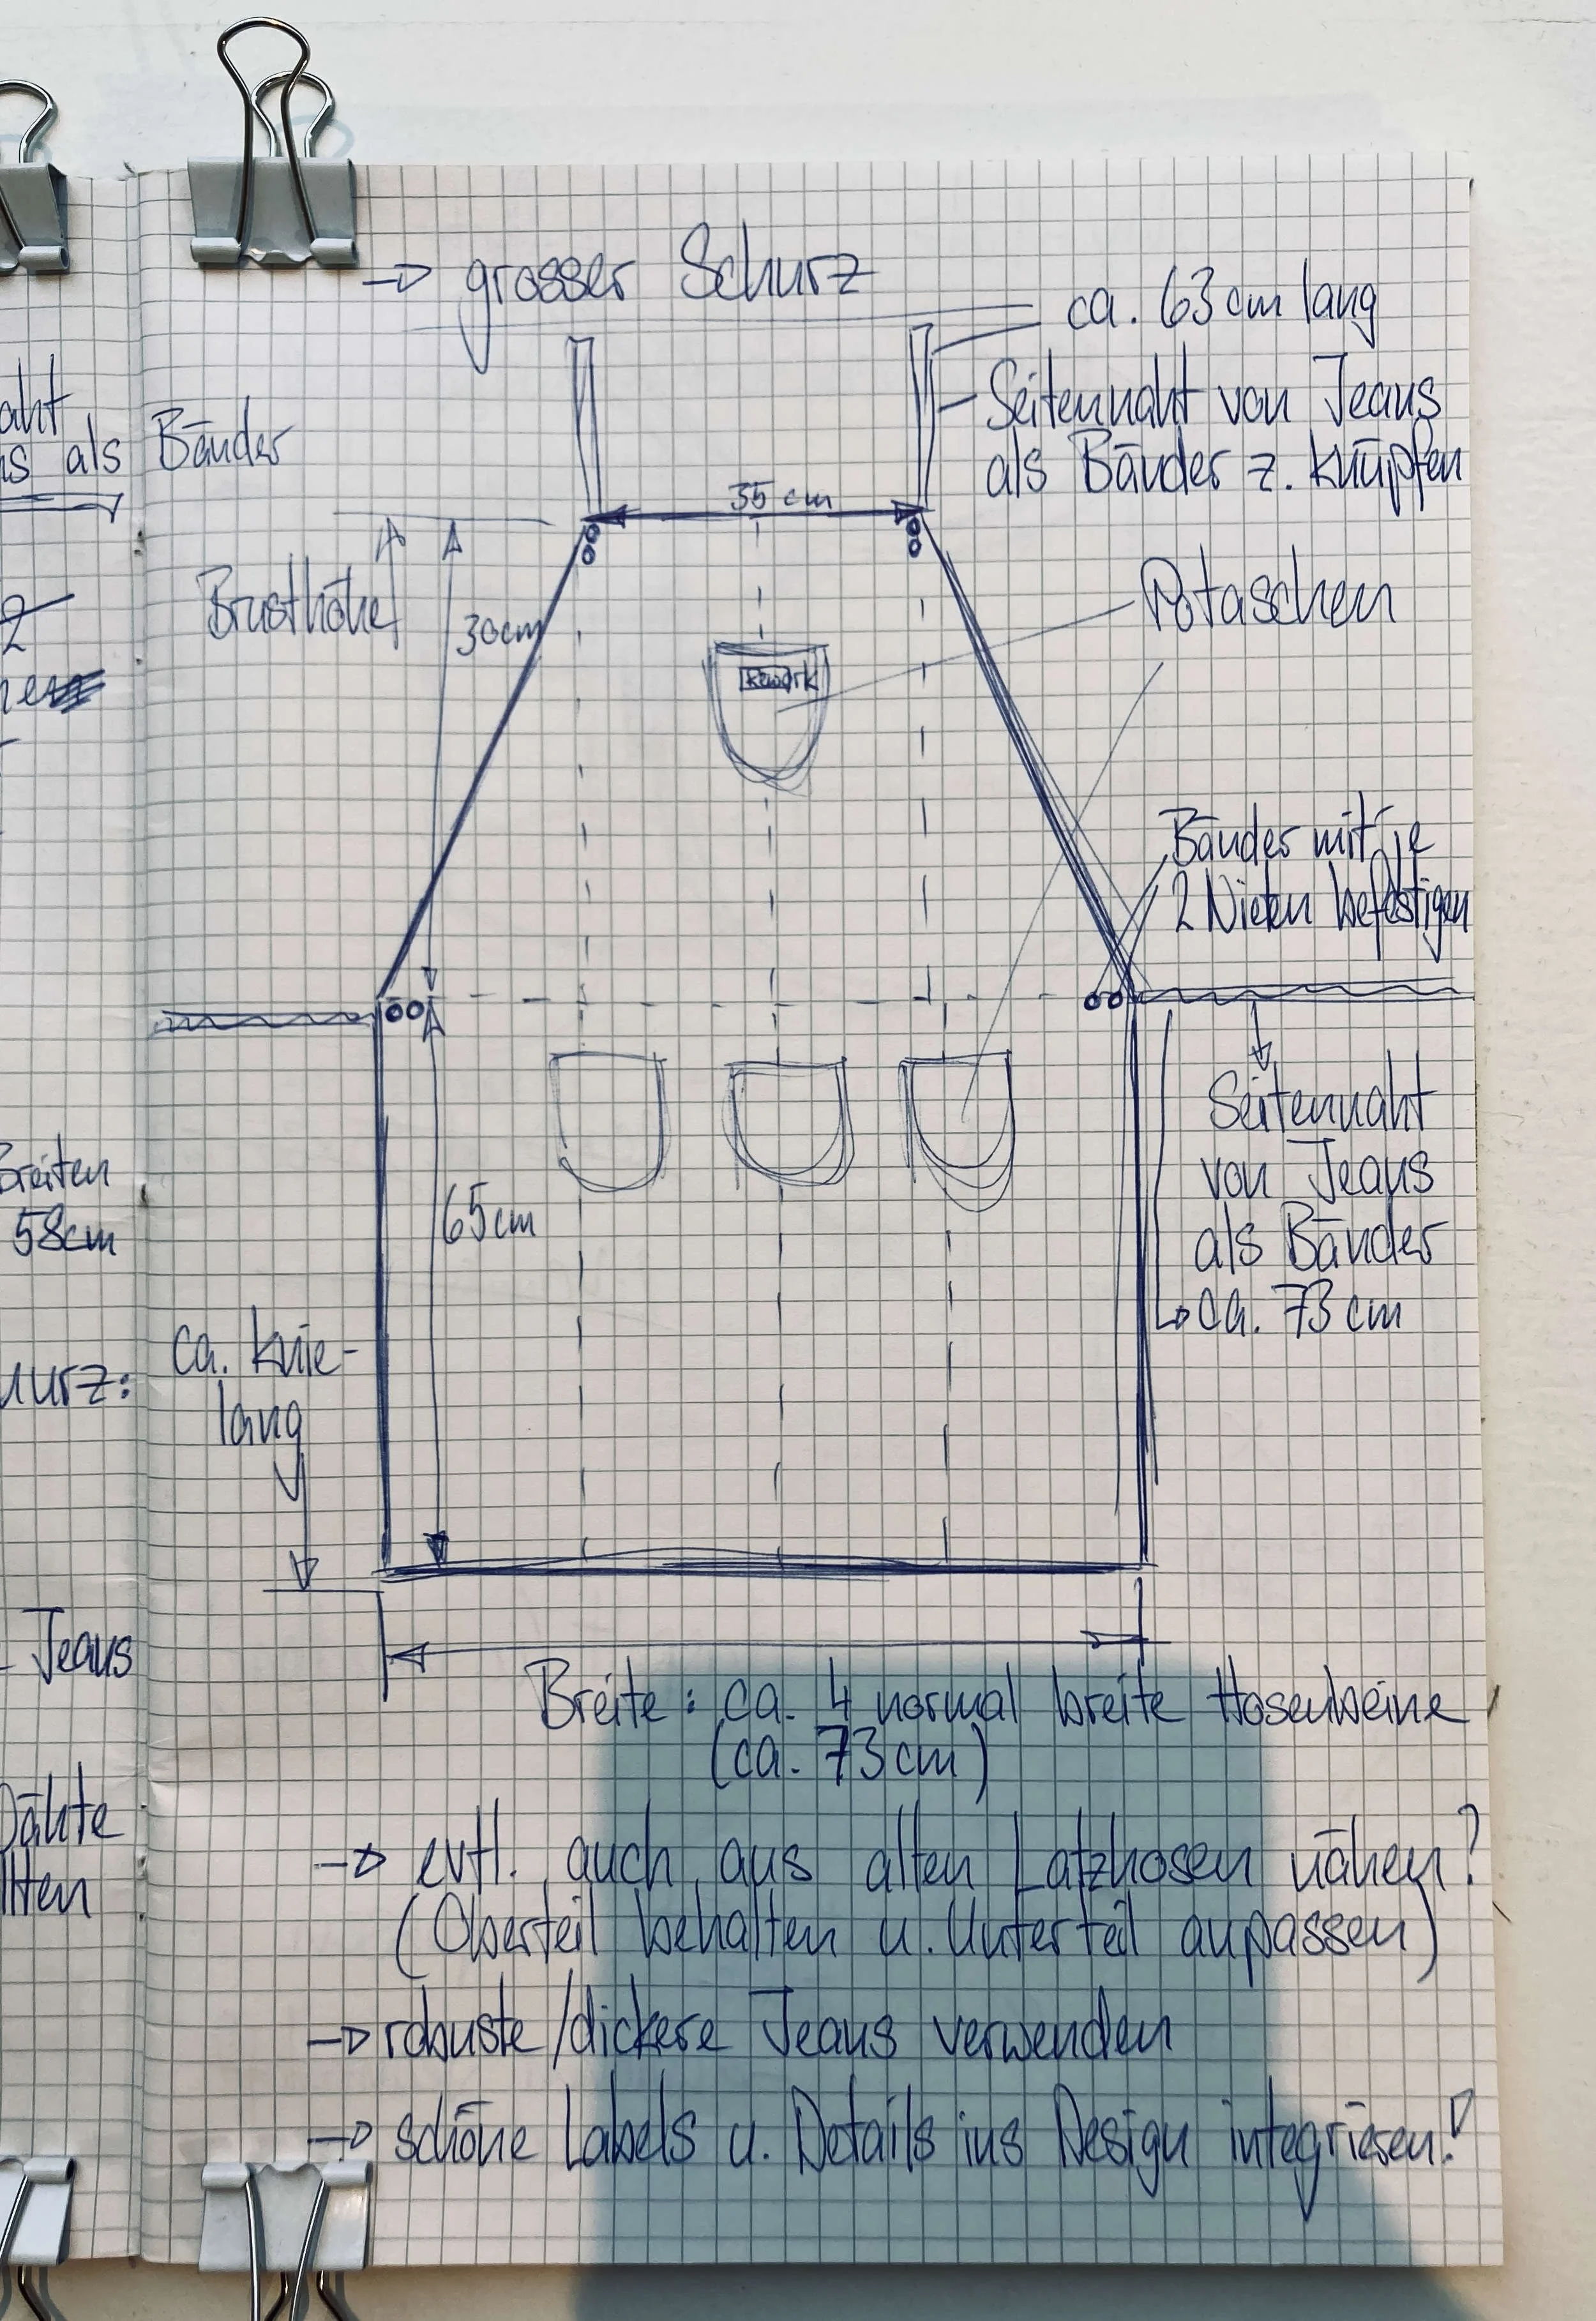 → grosser Schurz
ca. 63 cm lang
Seitennaht von Jeans
als Bänder z. knüpfen
35 cm
Brusthöhe
30cm
Potaschen
Rework
Bänder mit je
2 Nieten befestigen
Seitennaht
von Jeans
als Bänder
→ ca. 73 cm
65cm
ca. knie-
lang
Breite: ca. 4 normal breite Hosenbeine
(ca. 73 cm)
→ evtl. auch aus alten Latzhosen nähen?
(Oberteil behalten u. Unterteil anpassen)
→ robuste/dickere Jeans verwenden
→ schöne Labels u. Details ins Design integrieren!
als Bänder
Breiten
58cm
Jeans